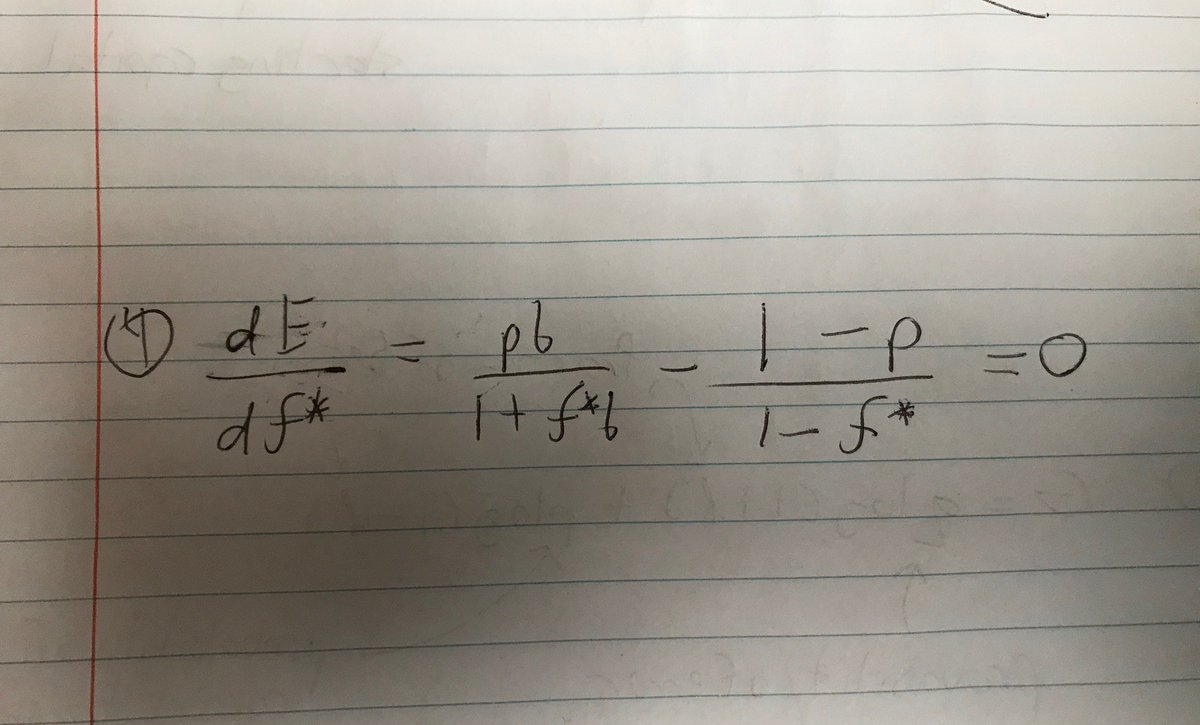 ④ dE/df* = pb/(1 + f*b) - (1 - p)/(1 - f*) = 0